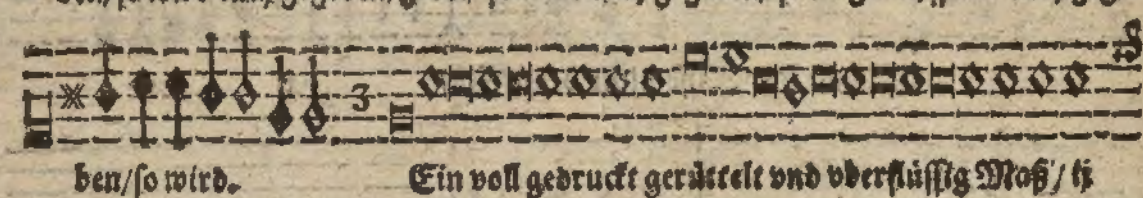 3
ben/so wird. Ein voll gedruckt gerüttelt vnd vberflüssig Maß/ ij